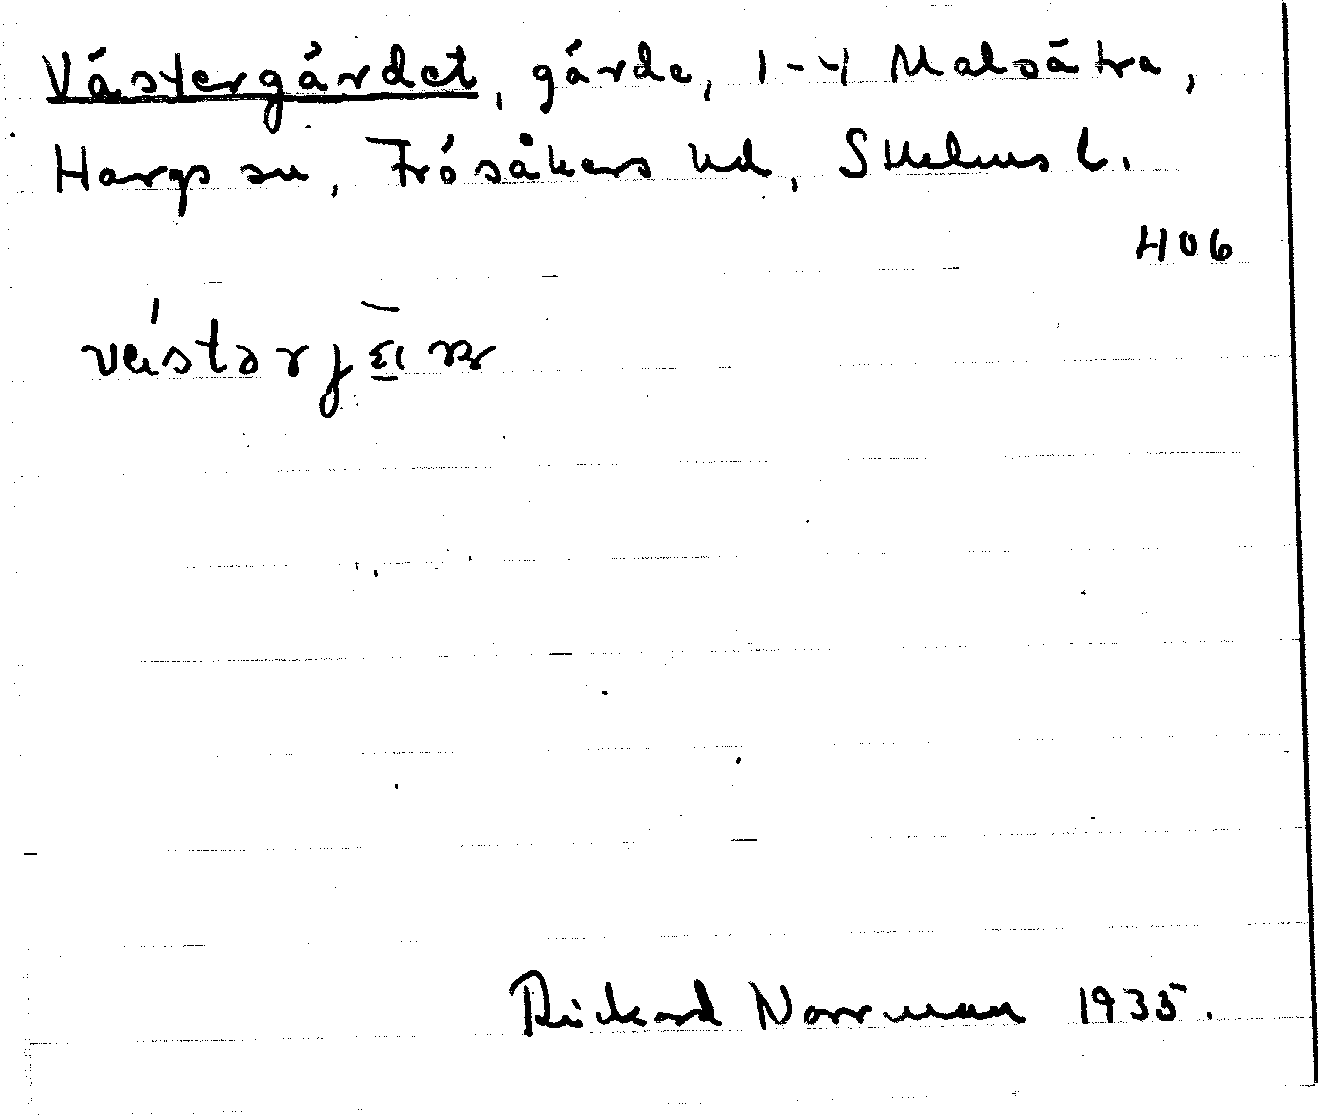 Västergärdet, gärde, 1-4 Malsätra,
Hargs sn, Frösåkers hd, Sthlms l.
406
Rickard Norrman 1935.